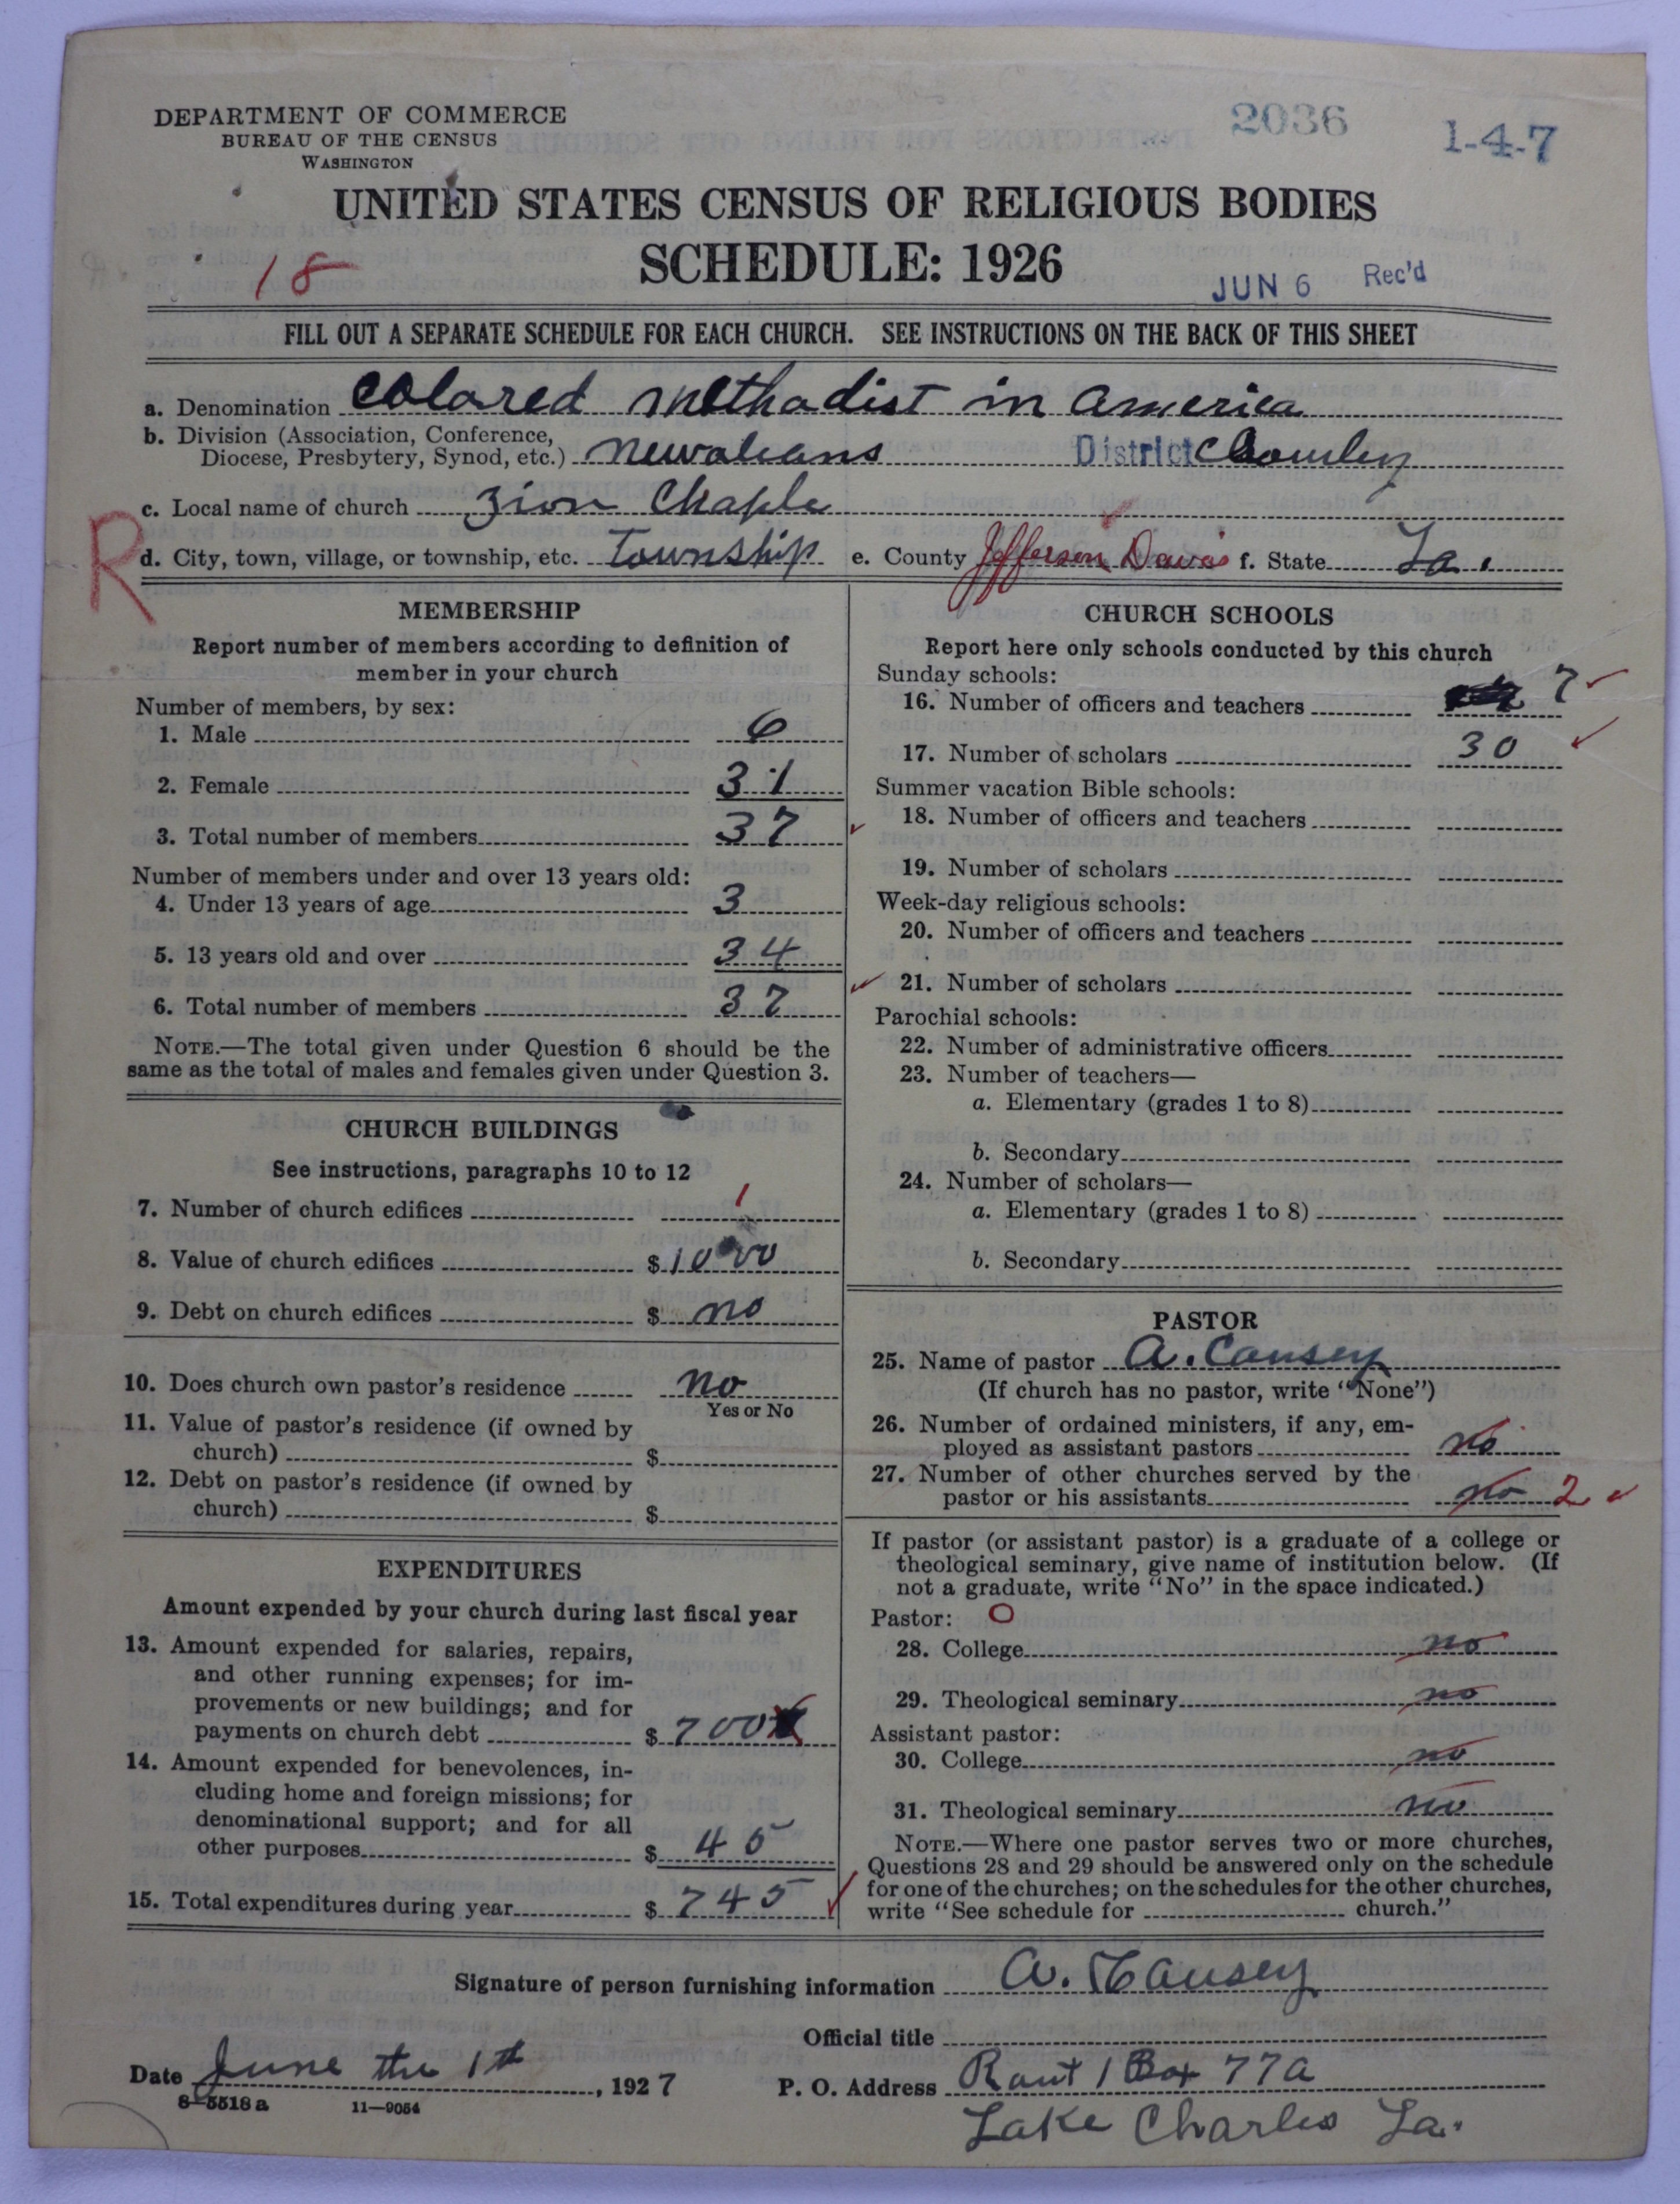 DEPARTMENT OF COMMERCE
BUREAU OF THE CENSUS
WASHINGTON
2036
1-4-7
UNITED STATES CENSUS OF RELIGIOUS BODIES
SCHEDULE: 1926
18
JUN 6 Rec'd
FILL OUT A SEPARATE SCHEDULE FOR EACH CHURCH. SEE INSTRUCTIONS ON THE BACK OF THIS SHEET
a. Denomination Colored Methodist in America
b. Division (Association, Conference,
Diocese, Presbytery, Synod, etc.) Neworleans District
c. Local name of church Zion Chaple
R
d. City, town, village, or township, etc. Township e. County Jefferson Davis f. State La.
MEMBERSHIP
Report number of members according to definition of
member in your church
Number of members, by sex:
1. Male 6
2. Female 31
3. Total number of members 37
Number of members under and over 13 years old:
4. Under 13 years of age 3
5. 13 years old and over 34
6. Total number of members 37
NOTE.—The total given under Question 6 should be the
same as the total of males and females given under Question 3.
CHURCH BUILDINGS
See instructions, paragraphs 10 to 12
7. Number of church edifices 1
8. Value of church edifices $1000
9. Debt on church edifices $ no
10. Does church own pastor's residence no
Yes or No
11. Value of pastor's residence (if owned by
church) $
12. Debt on pastor's residence (if owned by
church) $
EXPENDITURES
Amount expended by your church during last fiscal year
13. Amount expended for salaries, repairs,
and other running expenses; for im-
provements or new buildings; and for
payments on church debt $ 700
14. Amount expended for benevolences, in-
cluding home and foreign missions; for
denominational support; and for all
other purposes $ 45
15. Total expenditures during year $ 745
CHURCH SCHOOLS
Report here only schools conducted by this church
Sunday schools:
16. Number of officers and teachers 7
17. Number of scholars 30
Summer vacation Bible schools:
18. Number of officers and teachers
19. Number of scholars
Week-day religious schools:
20. Number of officers and teachers
21. Number of scholars
Parochial schools:
22. Number of administrative officers
23. Number of teachers—
a. Elementary (grades 1 to 8)
b. Secondary
24. Number of scholars—
a. Elementary (grades 1 to 8)
b. Secondary
PASTOR
25. Name of pastor A. Causey
(If church has no pastor, write "None")
26. Number of ordained ministers, if any, em-
ployed as assistant pastors no
27. Number of other churches served by the
pastor or his assistants no 2
If pastor (or assistant pastor) is a graduate of a college or
theological seminary, give name of institution below. (If
not a graduate, write "No" in the space indicated.)
Pastor: O
28. College no
29. Theological seminary no
Assistant pastor:
30. College no
31. Theological seminary no
NOTE.—Where one pastor serves two or more churches,
Questions 28 and 29 should be answered only on the schedule
for one of the churches; on the schedules for the other churches,
write "See schedule for church."
Signature of person furnishing information A. Causey
Official title
Date June the 1st, 1927
P. O. Address Rout 1 Box 77A
8-5518a 11-9054
Lake Charles La.